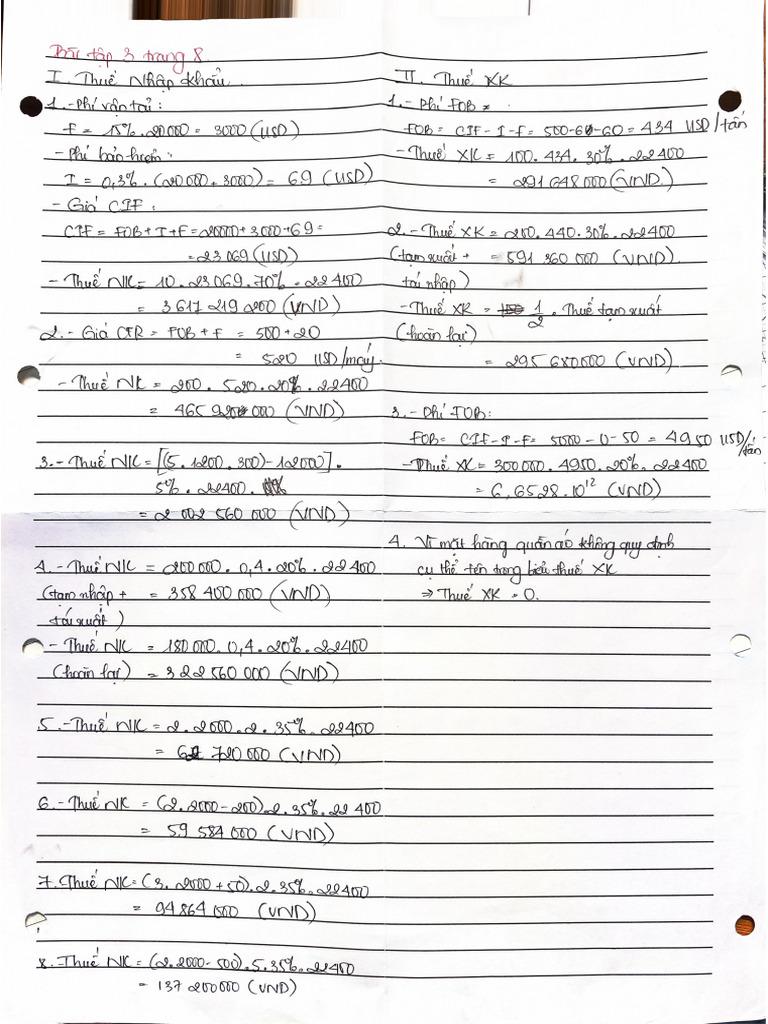 Bài tập 3 trang 8
I. Thuế Nhập khẩu
1. - Phí vận tải:
F = 15%. 20000 = 3000 (USD)
- Phí bảo hiểm:
I = 0,3%. (20000 + 3000) = 69 (USD)
- Giá CIF:
CIF = FOB + I + F = 20000 + 3000 + 69 =
= 23069 (USD)
- Thuế NK = 10. 23069. 70%. 22400
= 3617 219 200 (VND)
2. - Giá CFR = FOB + F = 500 + 20
= 520 USD/máy
- Thuế NK = 200. 520. 20%. 22400
= 465 920 000 (VND)
3. - Thuế NK = [(5. 1200. 300) - 12000].
5%. 22400.
= 2 002 560 000 (VND)
4. - Thuế NK = 200000. 0,4. 20%. 22400
(tạm nhập + = 358 400 000 (VND)
tái xuất)
- Thuế NK = 180000. 0,4. 20%. 22400
(hoàn lại) = 322 560 000 (VND)
5. - Thuế NK = 2. 2000. 2. 35%. 22400
= 62 720 000 (VND)
6. - Thuế NK = (2. 2000 - 200). 2. 35%. 22 400
= 59 584 000 (VND)
7. Thuế NK = (3. 2000 + 50). 2. 35%. 22400
= 94 864 000 (VND)
8. Thuế NK = (2. 2000 - 500). 5. 35%. 22400
= 137 200000 (VND)
II. Thuế XK
1. - Phí FOB =
FOB = CIF - I - F = 500 - 6 - 60 = 434 USD/tấn
- Thuế XK = 100. 434. 30%. 22400
= 291 648 000 (VND)
2. - Thuế XK = 200. 440. 30%. 22400
(tạm xuất + = 591 360 000 (VND)
tái nhập)
- Thuế XK = 1/2. Thuế tạm xuất
(hoàn lại)
= 295 680000 (VND)
3. - Phí FOB:
FOB = CIF - I - F = 5000 - 0 - 50 = 4950 USD/tấn
- Thuế XK = 300000. 4950. 20%. 22400
= 6,6528. 10¹² (VND)
4. Vì mặt hàng quần áo không quy định
cụ thể tên trong biểu thuế XK
⇒ Thuế XK = 0.